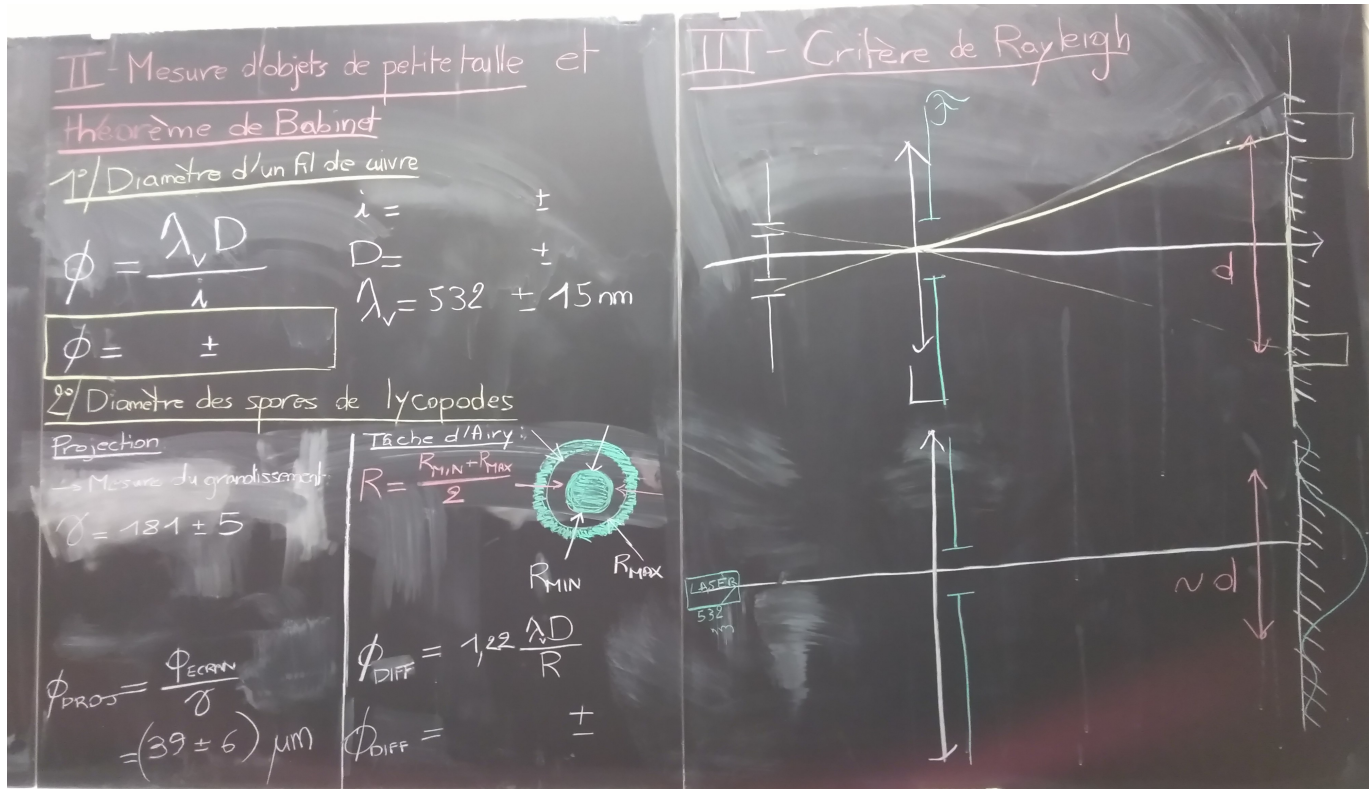 II - Mesure d'objets de petite taille et
théorème de Babinet
1°/ Diamètre d'un fil de cuivre
ϕ = λ_v D / i
i = ±
D = ±
λ_v = 532 ± 15 nm
ϕ = ±
2°/ Diamètre des spores de lycopodes
Projection
→ Mesure du grandissement
γ = 181 ± 5
ϕ_PROJ = ϕ_ECRAN / γ
= (39 ± 6) μm
Tâche d'Airy :
R = (R_MIN + R_MAX) / 2
R_MIN
R_MAX
ϕ_DIFF = 1,22 λ_v D / R
ϕ_DIFF = ±
III - Critère de Rayleigh
d
L
LASER
532
nm
~ d